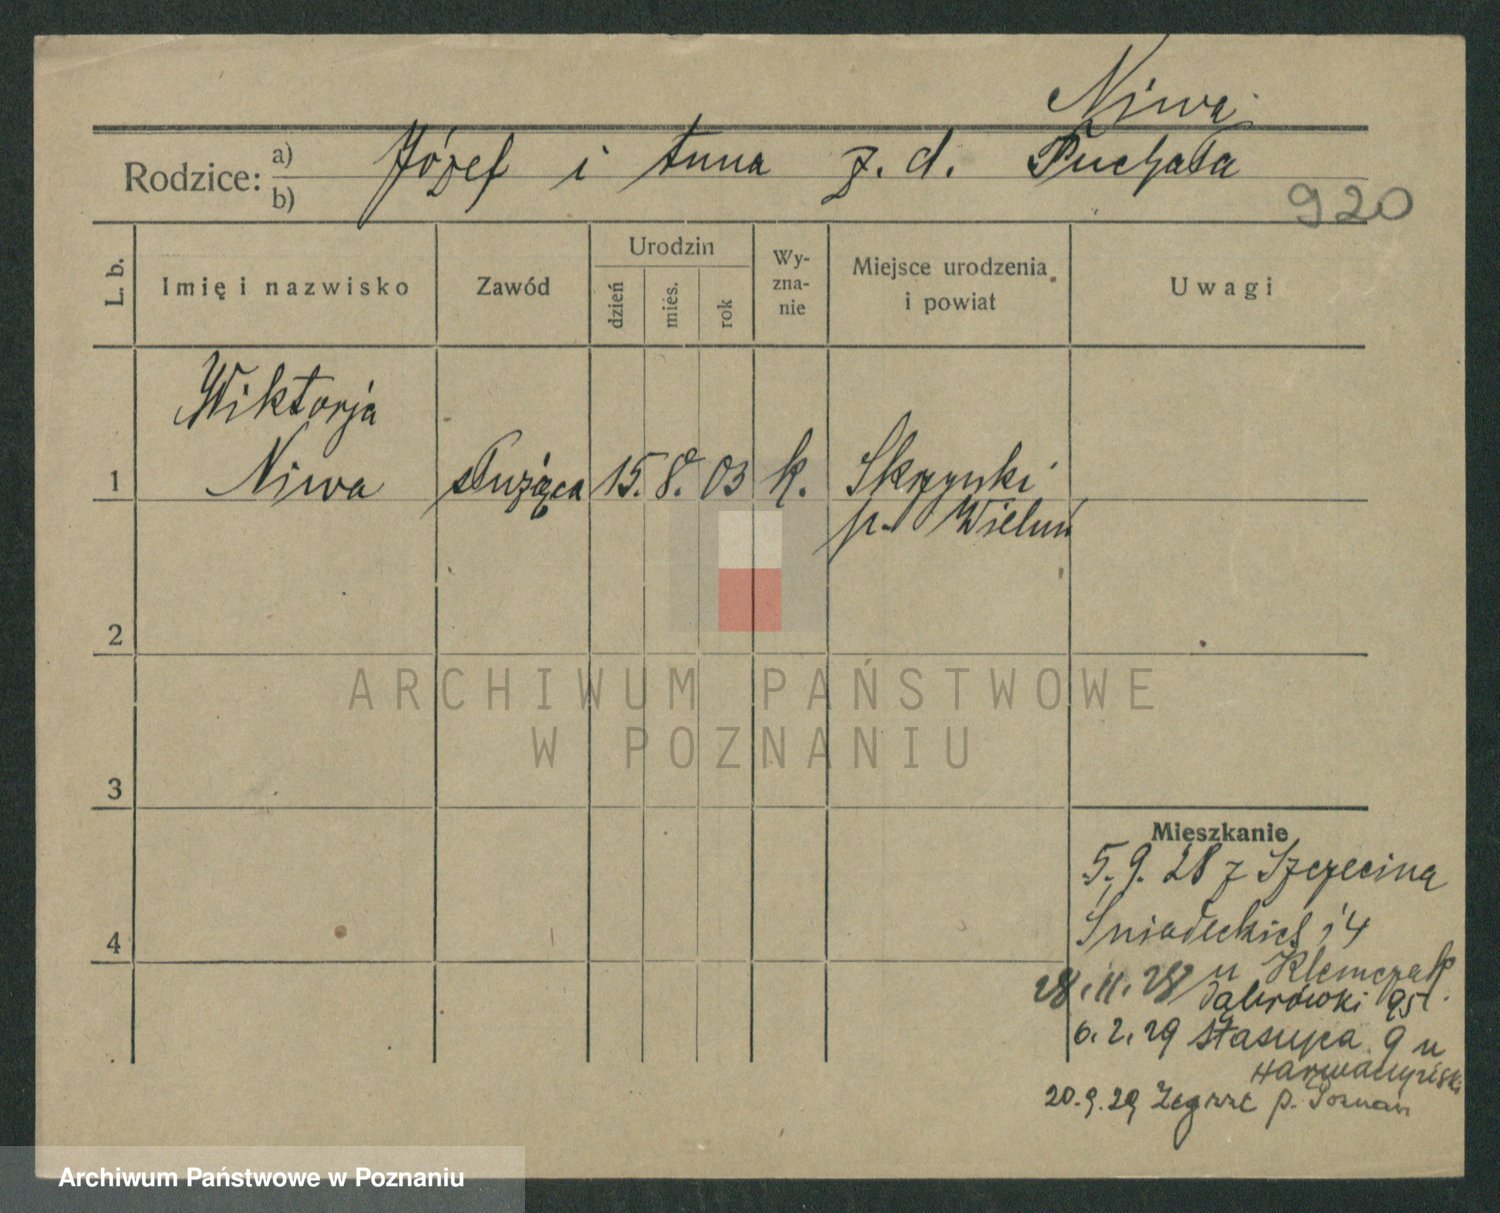 Niwa
Rodzice: a) b) Józef i Anna z. d. Puchała
920
L. b.
Imię i nazwisko
Zawód
Urodzin
dzień
mies.
rok
Wy-
zna-
nie
Miejsce urodzenia
i powiat
Uwagi
Wiktorja
1 Niwa służąca 15. 8. 03 k. Skrzynki
p. Wieluń
2
ARCHIWUM PAŃSTWOWE
W POZNANIU
3
Mieszkanie
5.9.28 z Szczecina
4 Śniadeckich 14
u Klemczak
28.11.28 Dąbrówki 95
6.2.29 Stasyca 9 u
20.9.29 Zegrze p. Poznań
Archiwum Państwowe w Poznaniu